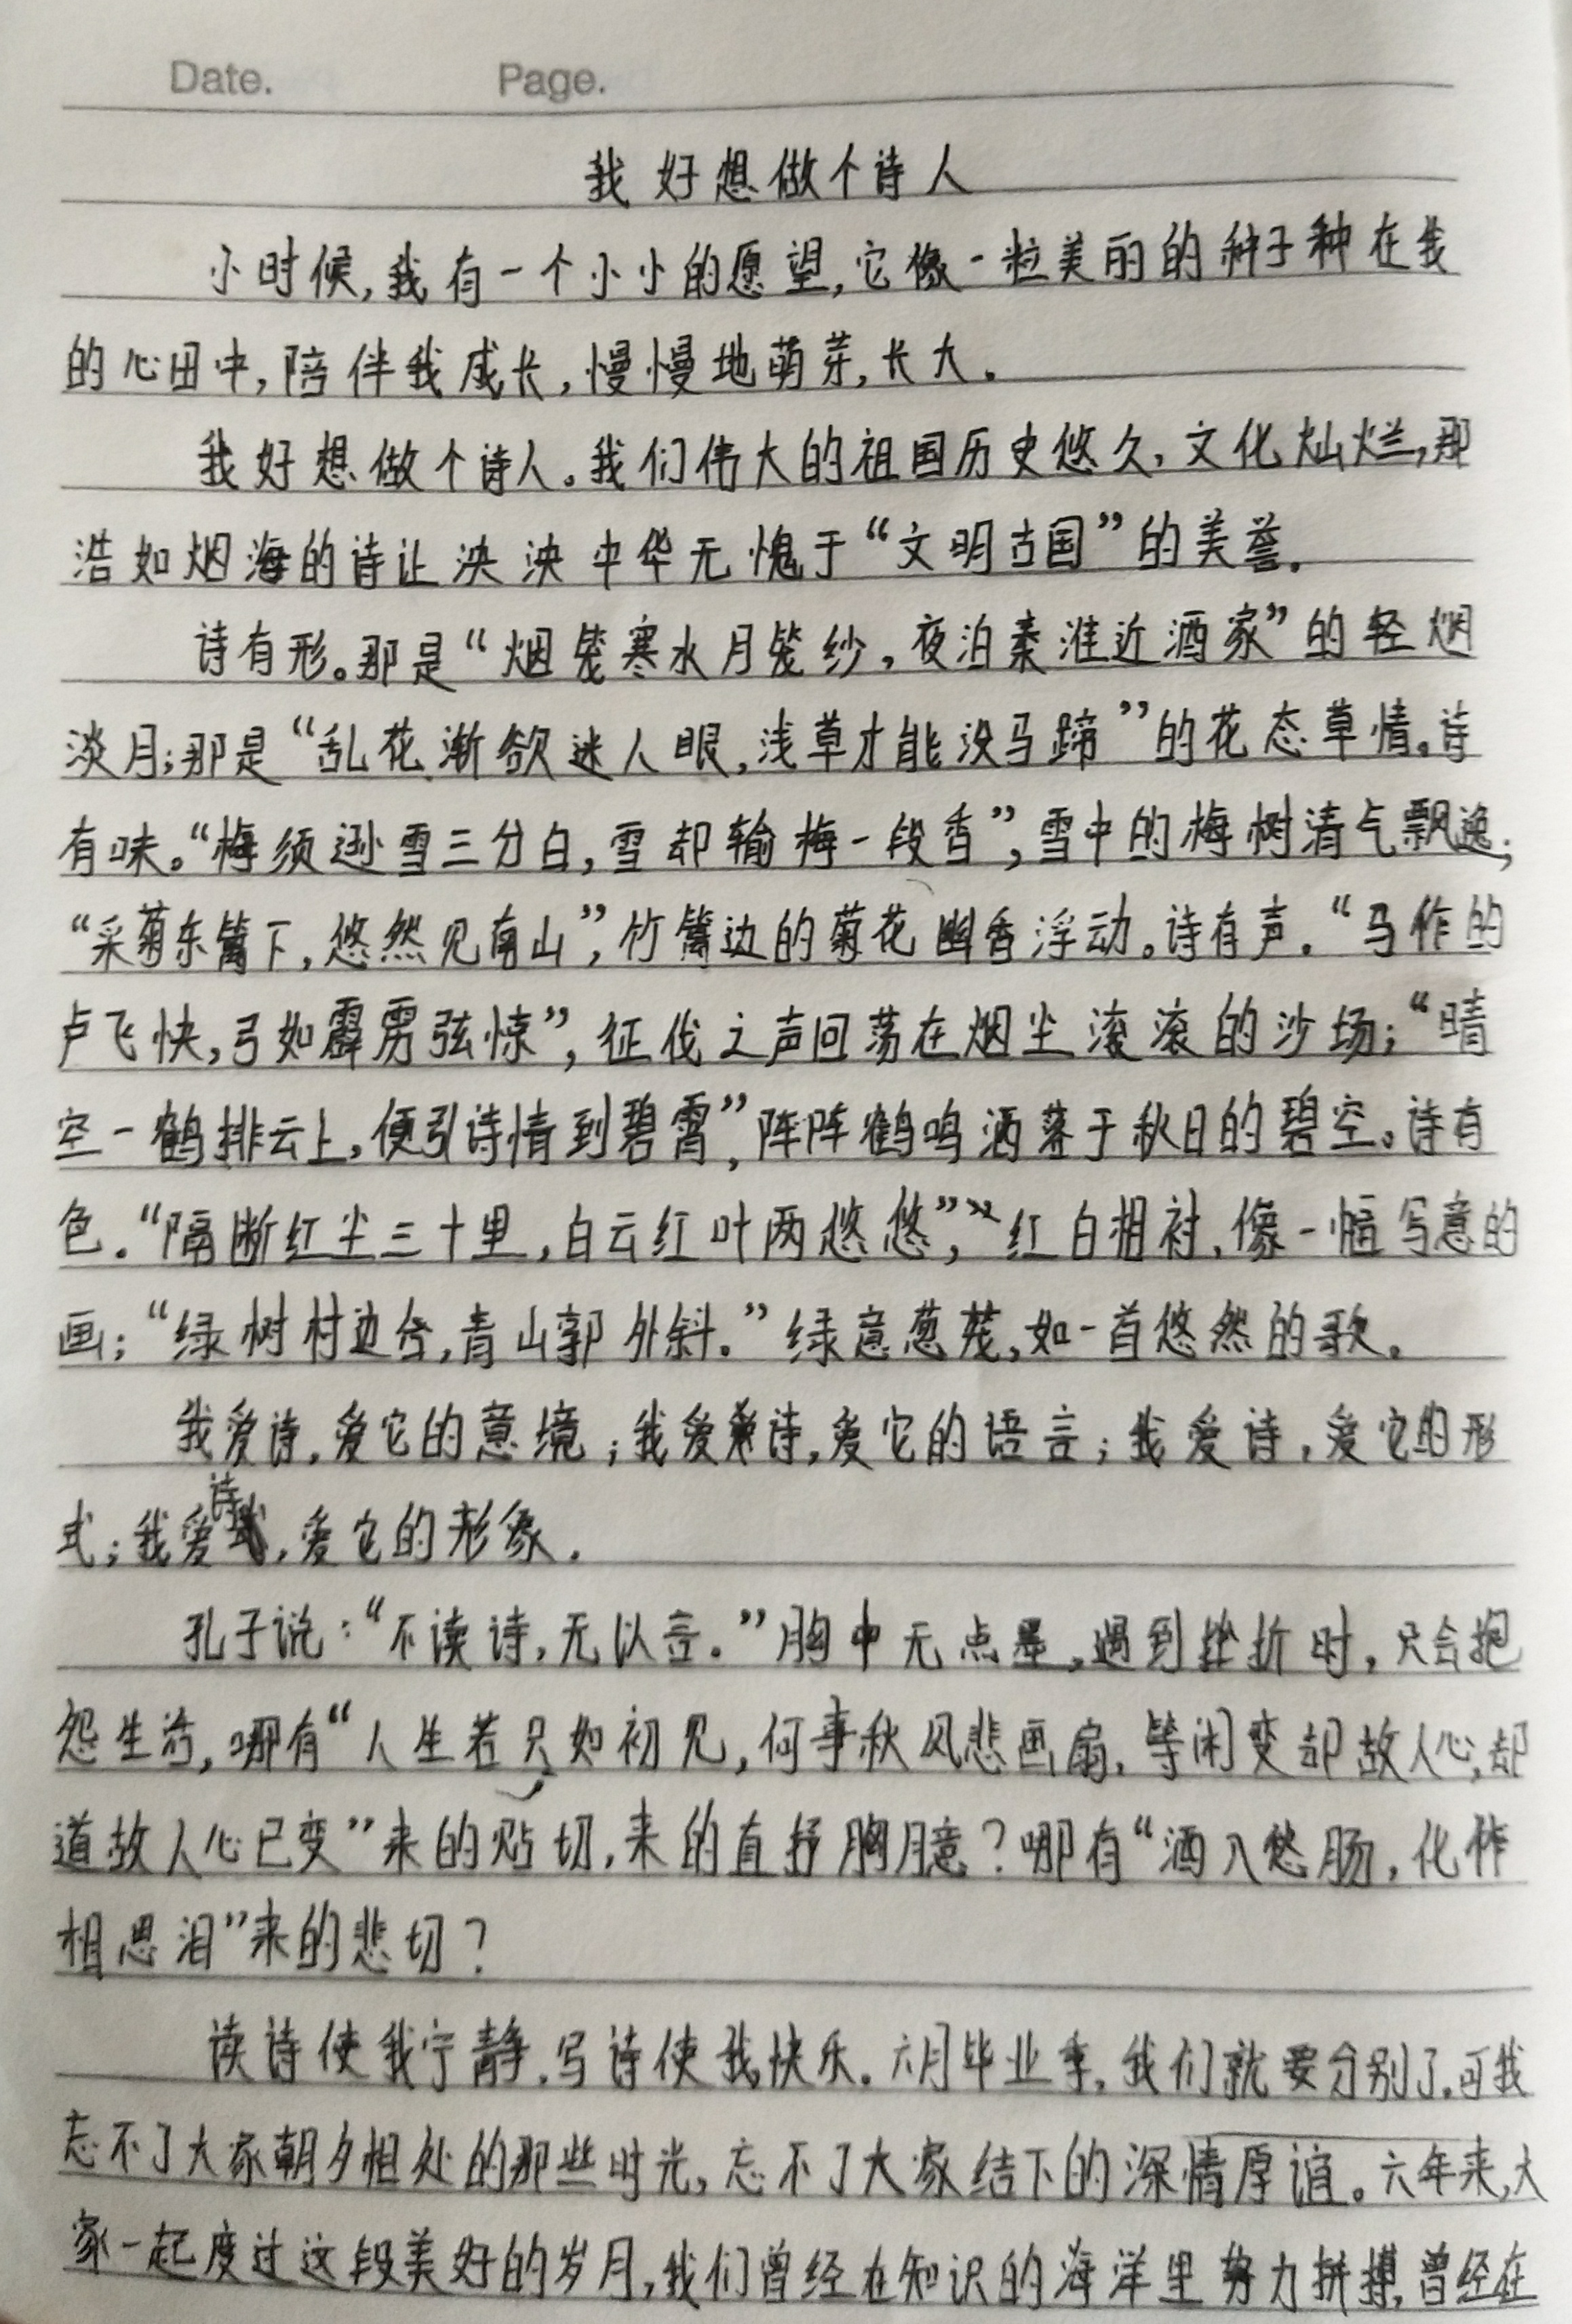 Date. Page.
我好想做个诗人
小时候,我有一个小小的愿望,它像一粒美丽的种子种在我
的心田中,陪伴我成长,慢慢地萌芽,长大。
我好想做个诗人。我们伟大的祖国历史悠久,文化灿烂,那
浩如烟海的诗让泱泱中华无愧于“文明古国”的美誉.
诗有形。那是“烟笼寒水月笼纱,夜泊秦淮近酒家”的轻烟
淡月;那是“乱花渐欲迷人眼,浅草才能没马蹄”的花态草情。诗
有味。“梅须逊雪三分白,雪却输梅一段香”,雪中的梅树清气飘逸;
“采菊东篱下,悠然见南山”,竹篱边的菊花幽香浮动。诗有声.“马作的
卢飞快,弓如霹雳弦惊”,征伐之声回荡在烟尘滚滚的沙场;“晴
空一鹤排云上,便引诗情到碧霄”,阵阵鹤鸣洒落于秋日的碧空。诗有
色.“隔断红尘三十里,白云红叶两悠悠”,红白相衬,像一幅写意的
画;“绿树村边合,青山郭外斜.”绿意葱茏,如一首悠然的歌.
我爱诗,爱它的意境;我爱诗,爱它的语言;我爱诗,爱它的形
式;我爱诗,爱它的形象.
孔子说:“不读诗,无以言.”胸中无点墨,遇到挫折时,只会抱
怨生活,哪有“人生若只如初见,何事秋风悲画扇,等闲变却故人心,却
道故人心已变”来的贴切,来的直抒胸臆?哪有“酒入愁肠,化作
相思泪”来的悲切?
读诗使我宁静.写诗使我快乐.六月毕业季,我们就要分别了.可我
忘不了大家朝夕相处的那些时光,忘不了大家结下的深情厚谊。六年来,大
家一起度过这段美好的岁月,我们曾经在知识的海洋里努力拼搏,曾经在